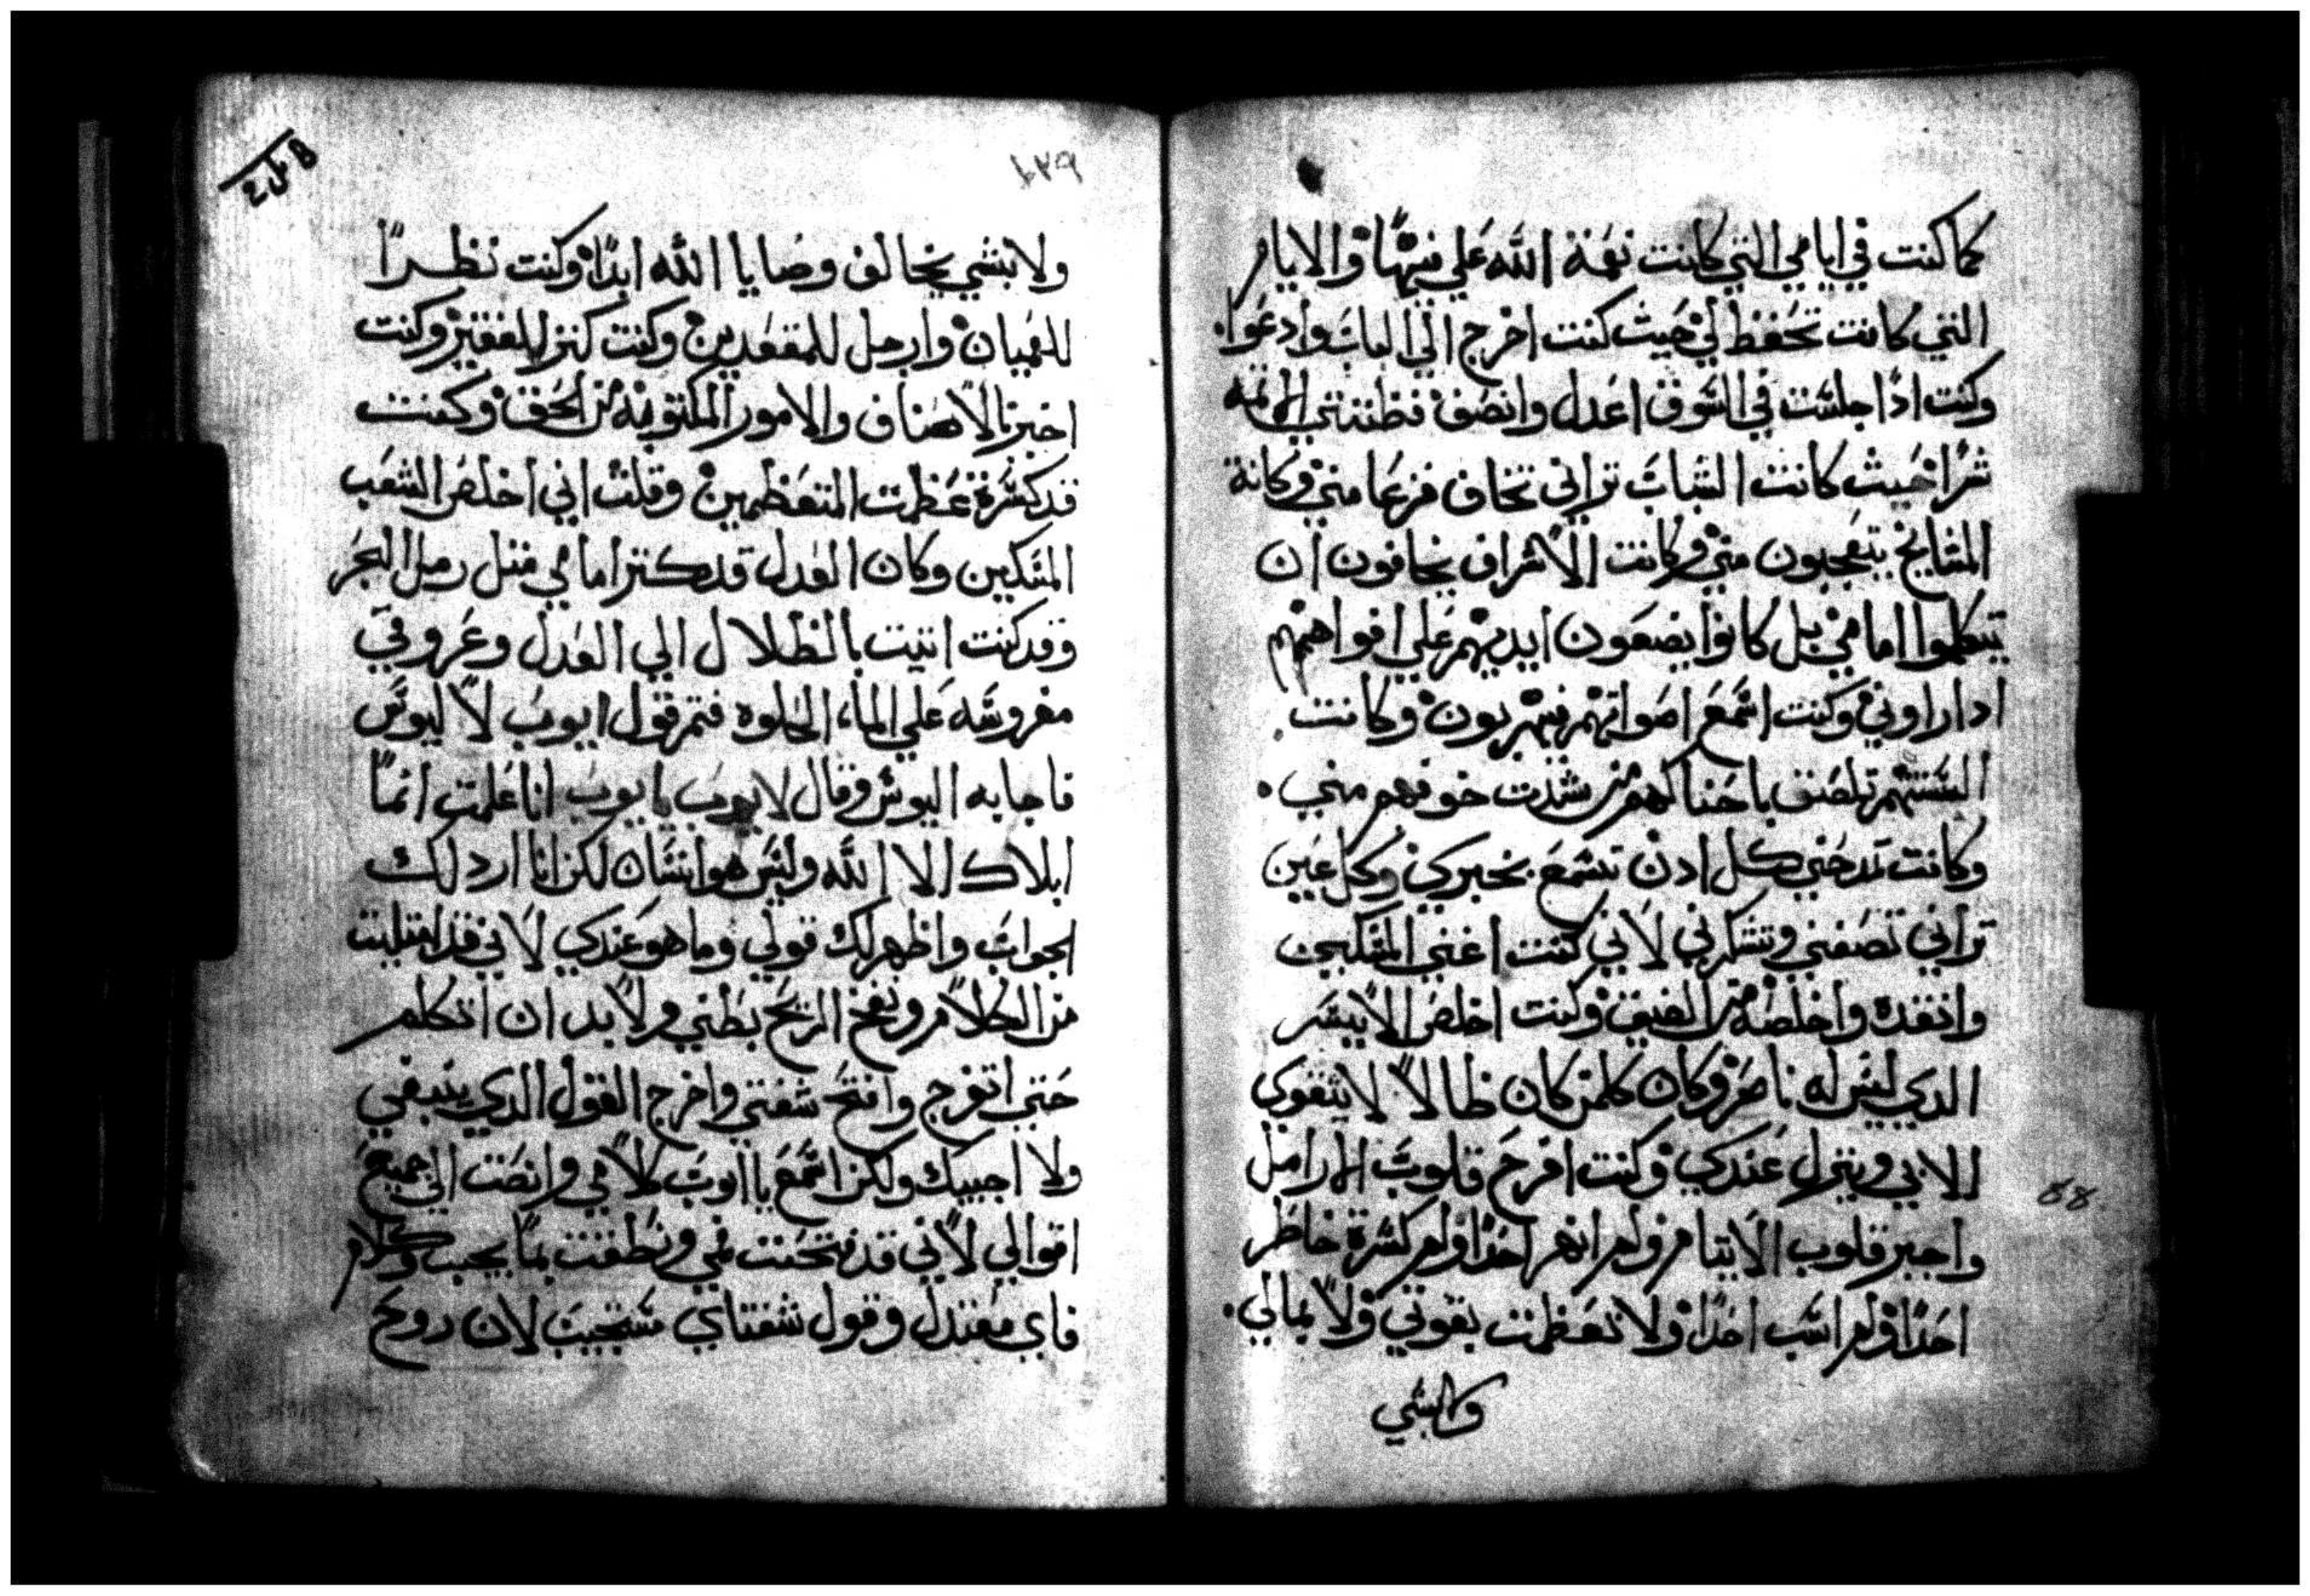 كما كنت في ايامي التي كانت نعمة الله علي فيها والايام
التي كانت تحفظ لي حيث كنت اخرج الي الباب وادعوا
وكنت اذا جلست في السوق اعدل وانصف فظنتني الايمه
شرا حيث كانت الشباب تراني تخاف فزعا مني وكانة
المشايخ يتعجبون مني وكانت الاشراف يخافون ان
يتكلموا امامي بل كانوا يضعون ايديهم علي افواههم
ادا راوني وكنت اسمع اصواتهم فيهربون وكانت
السنتهم تلصق باحناكهم من شدت خوفهم مني
وكانت تمدحني كل ادن تسمع بخبري وكل عين
تراني تصفني وتشكرني لاني كنت اغني المسكين
وانقده واخلصه من الضيق وكنت اخلص الايسر
الدي ليس له ناصر وكان كلمن كان ظالما لا يتقوي
الابي وينزل عندي وكنت افرح قلوب الارامل
واجبر قلوب الايتام ولم انهر احدا ولم كسرة خاطر
احدا ولم اسب احدا ولا تعظمت بقوتي ولا بمالي
ولا بشي
١٢٩
ولا بشي يخالف وصايا الله ابدا وكنت نظرا
للعميان وارجل للمقعدين وكنت كنز للفقير وكنت
اخبر بالاصناف والامور المكتوبه من الحق وكنت
قد كسرة عظمت المتعظمين وقلت اني اخلص الشعب
المسكين وكان العدل قد كتر امامي متل رمل البحر
وقد كنت اتيت بالظلال الي العدل وعروقي
مفروشه علي الماء الحلوه فتم قول ايوب لاليوس
فاجابه اليوس وقال لايوب يايوب انا علمت انما
ابلاك الا الله وليس هو انسان لكن انا ارد لك
الجواب واظهر لك قولي وما هو عندي لاني قد امتليت
من الكلام ونفخ الريح بطني ولابد ان اتكلم
حتي اتفرج وافتح شفتي واخرج القول الدي ينبغي
ولا اجيبك ولكن اسمع ياايوب كلامي وانصت الي جميع
اقوالي لاني قد فتحت فمي ونطقت بما يجب وكلام
فاي معتدل وقول شفتاي مستجيب لان روح